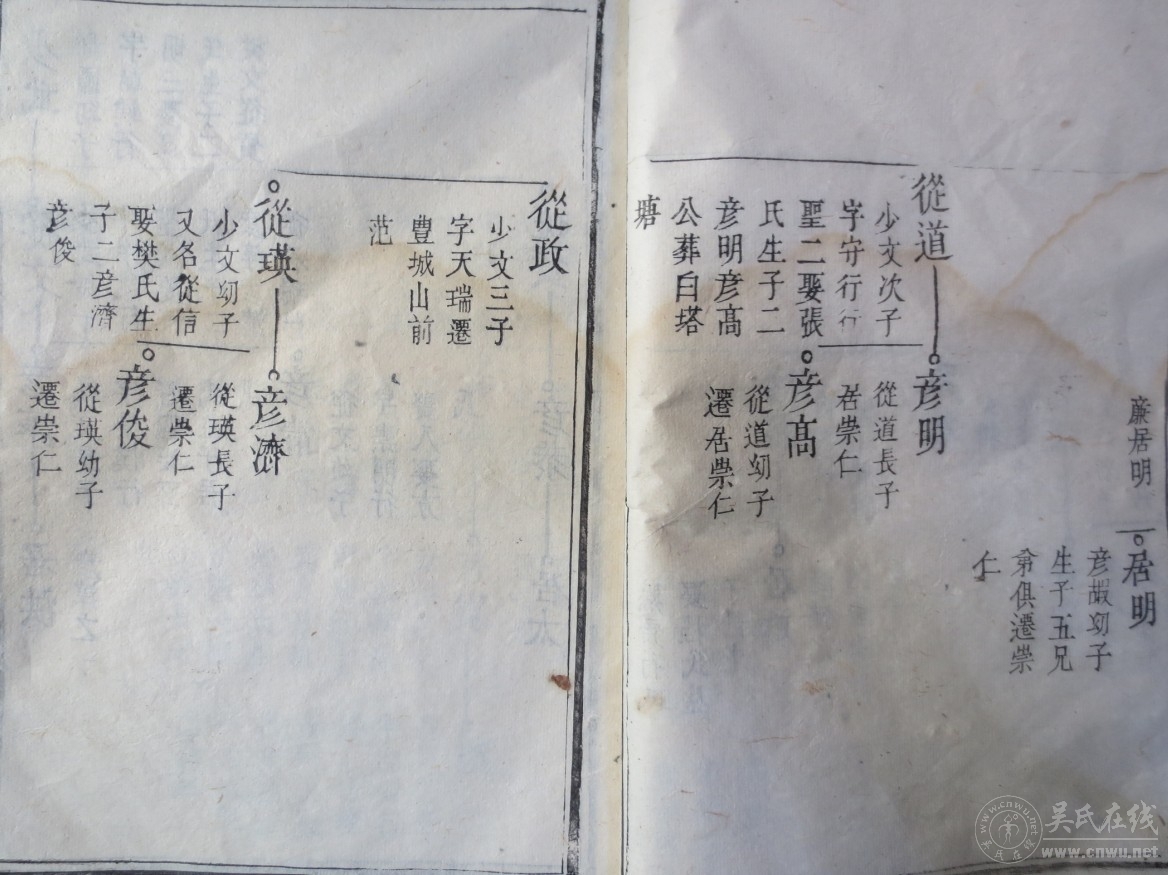 廉居明
居明
彦嘏幼子
生子五兄
弟俱遷崇
仁
從道
少文次子
字守行行
聖二娶張
氏生子二
彦明彦高
公葬白塔
塘
彦明
從道長子
居崇仁
彦高
從道幼子
遷居崇仁
從政
少文三子
字天瑞遷
豊城山前
范
從瑛
少文幼子
又名從信
娶樊氏生
子二彦濟
彦俊
彦濟
從瑛長子
遷崇仁
彦俊
從瑛幼子
遷崇仁
吴氏在线
www.cnwu.net